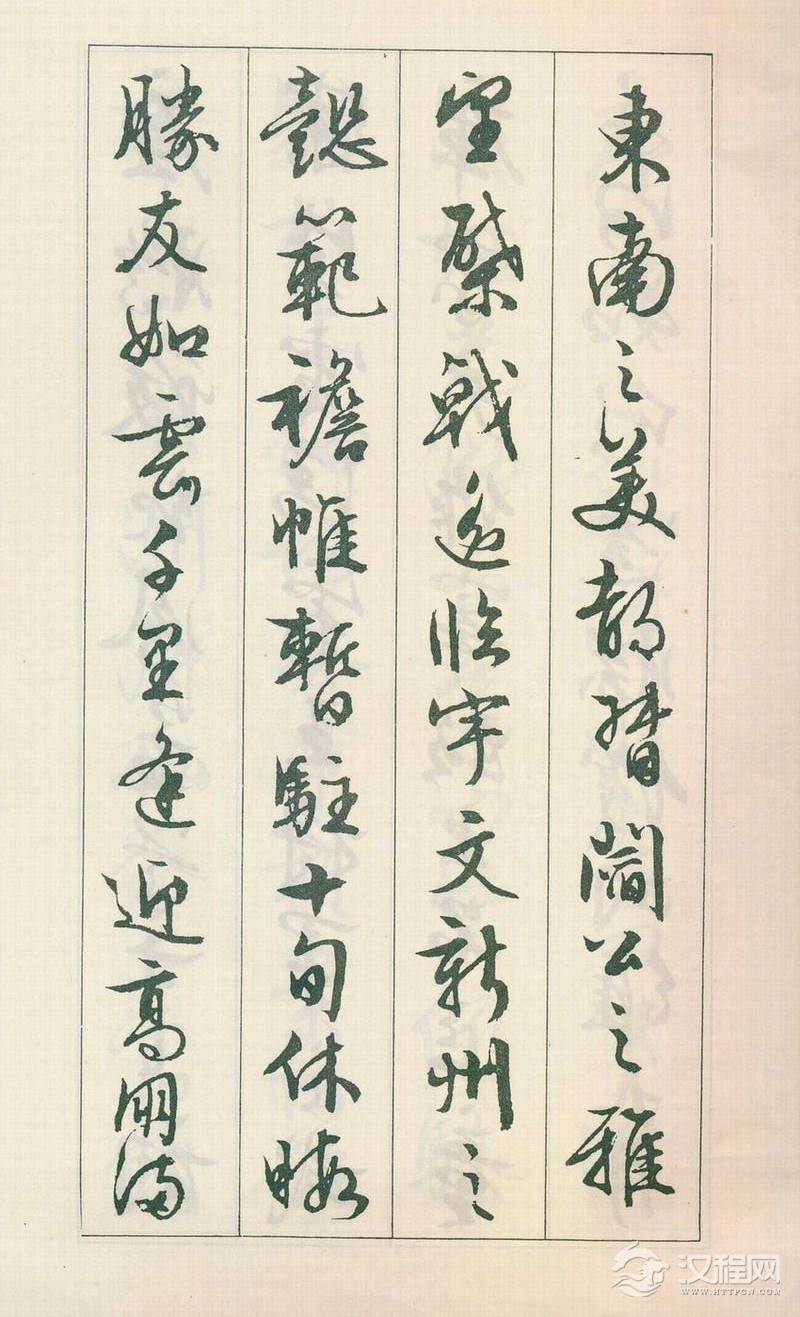 東南之美都督閻公之雅
望棨戟遙臨宇文新州之
懿範襜帷暫駐十旬休暇
勝友如雲千里逢迎高朋滿
汉程网
WWW.HTTPCN.COM